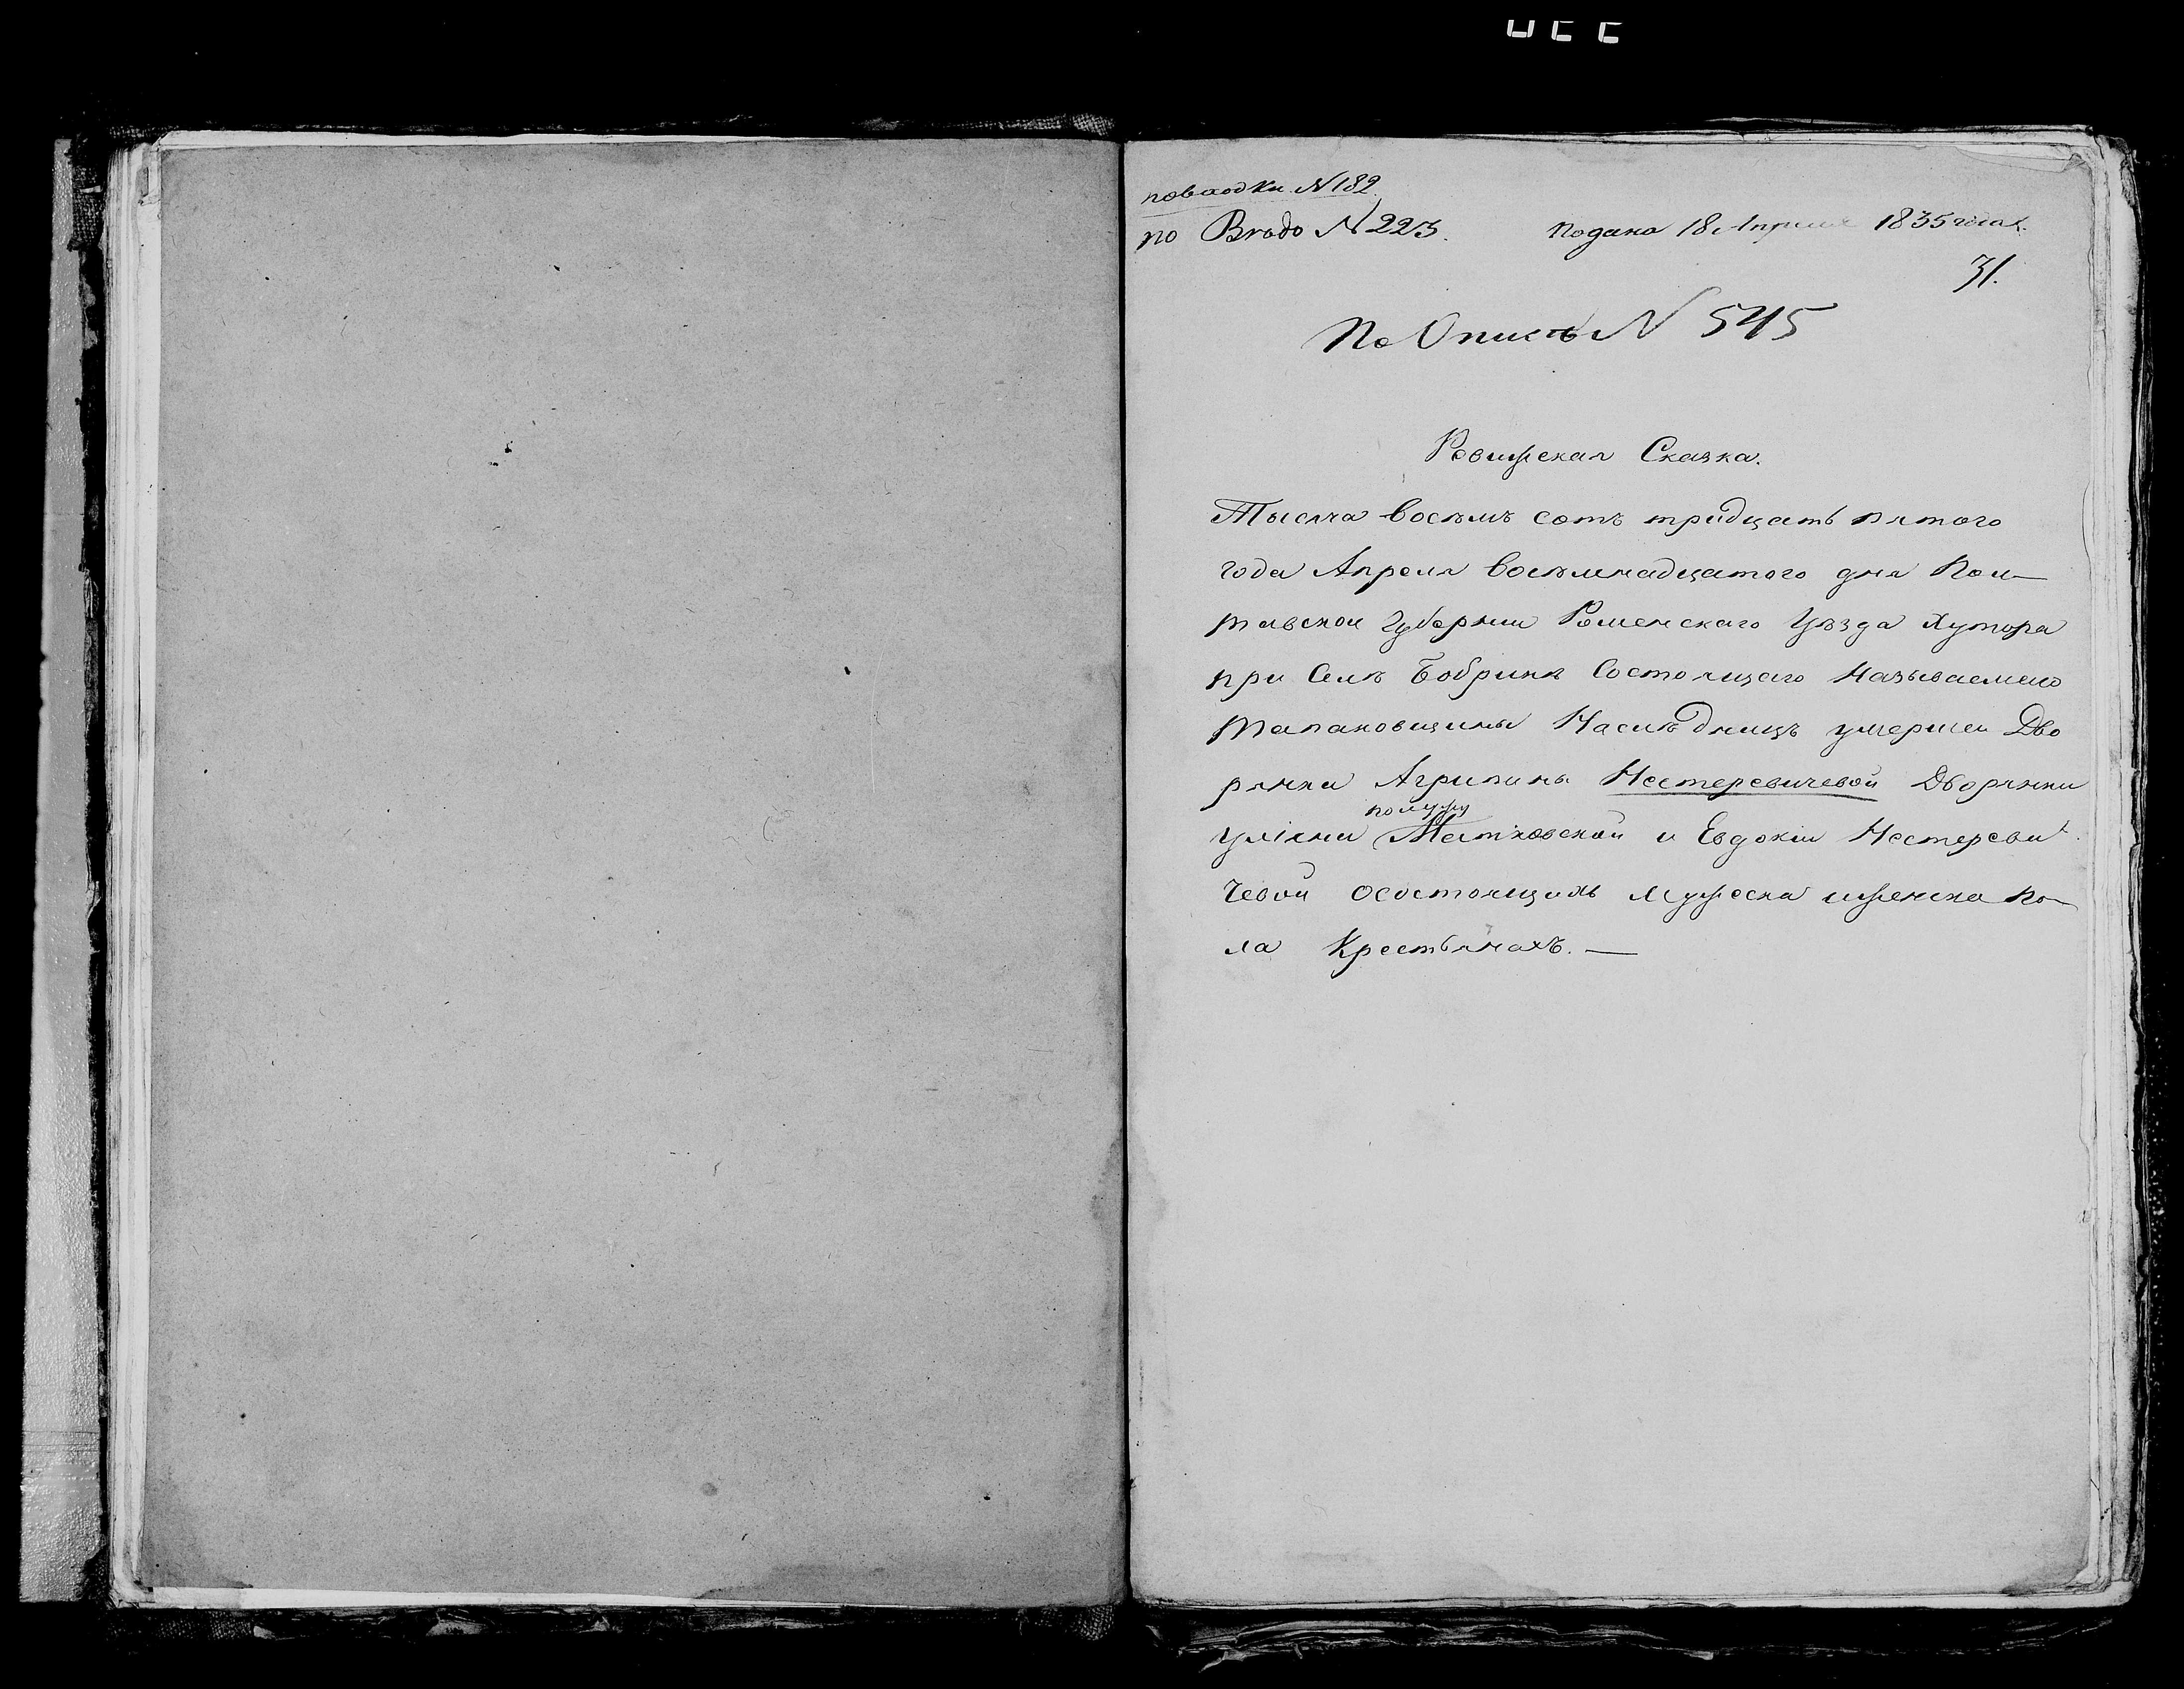 по входу № 182
по Вгодо № 223. Подана 18 Апреля 1835 года.
31.
По Описѣ № 545
Ревижская Сказка.
Тысяча восѣмъ сотъ тридцать пятого
года Апреля восѣмнадцатого дня Пол-
тавской Губернии Роменскаго Уѣзда Хутора
при Селѣ Бобрикѣ Состоящаго Называемаго
Талановщины Наслѣдницъ умершей Дво
рянки Агрипины Нестеревичевой Дворянки
помужу
Улiяни Матковской и Евдокiи Нестереви
чевой осостоящихъ мужеска иженска по-
ла Крестьянахъ. —